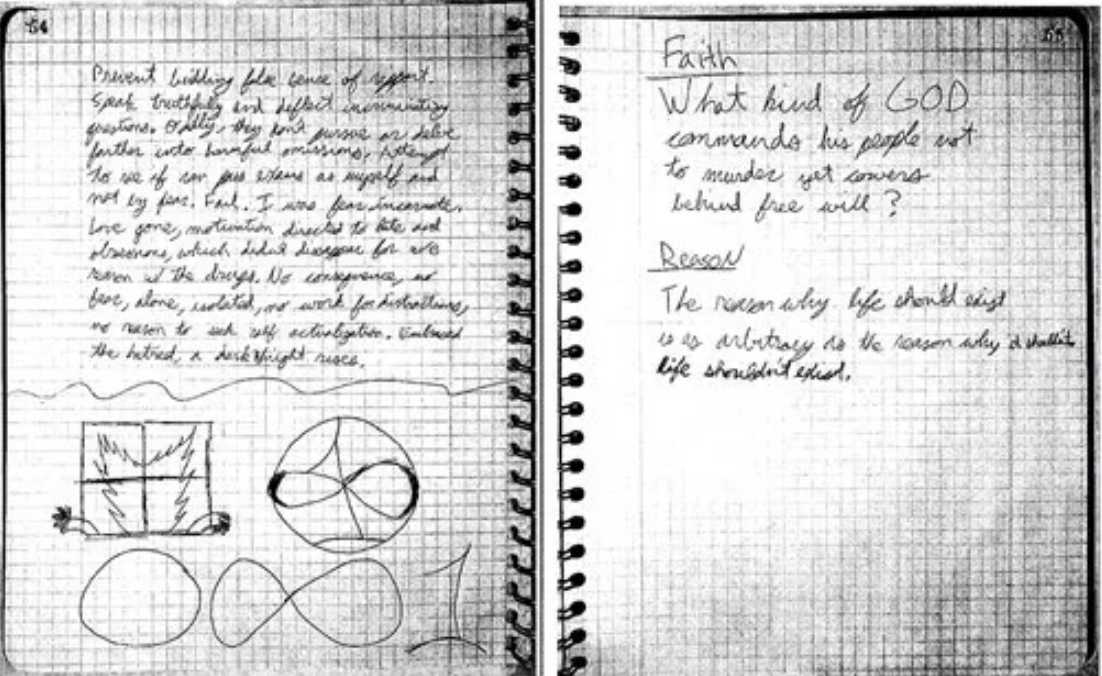 54
Prevent building false sense of rapport.
Speak truthfully and deflect incriminating
questions. Oddly, they don't pursue or delve
farther into harmful omissions. Attempt
to see if can pass exams as myself and
not by fear. Fail. I was fear incarnate.
Love gone, motivation directed to hate and
obsessions, which didn't disappear for w/e
reason w/ the drugs. No consequence, no
fear, alone, isolated, no work for distractions,
no reason to seek self actualization. Embraced
the hatred, a dark k/night rises.
55
Faith
What kind of GOD
commands his people not
to murder yet cowers
behind free will?
Reason
The reason why life should exist
is as arbitrary as the reason why
life shouldn't exist.